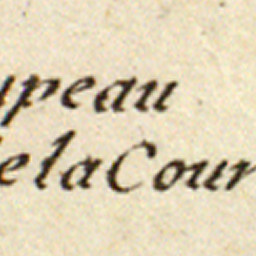 upeau
de la Cour